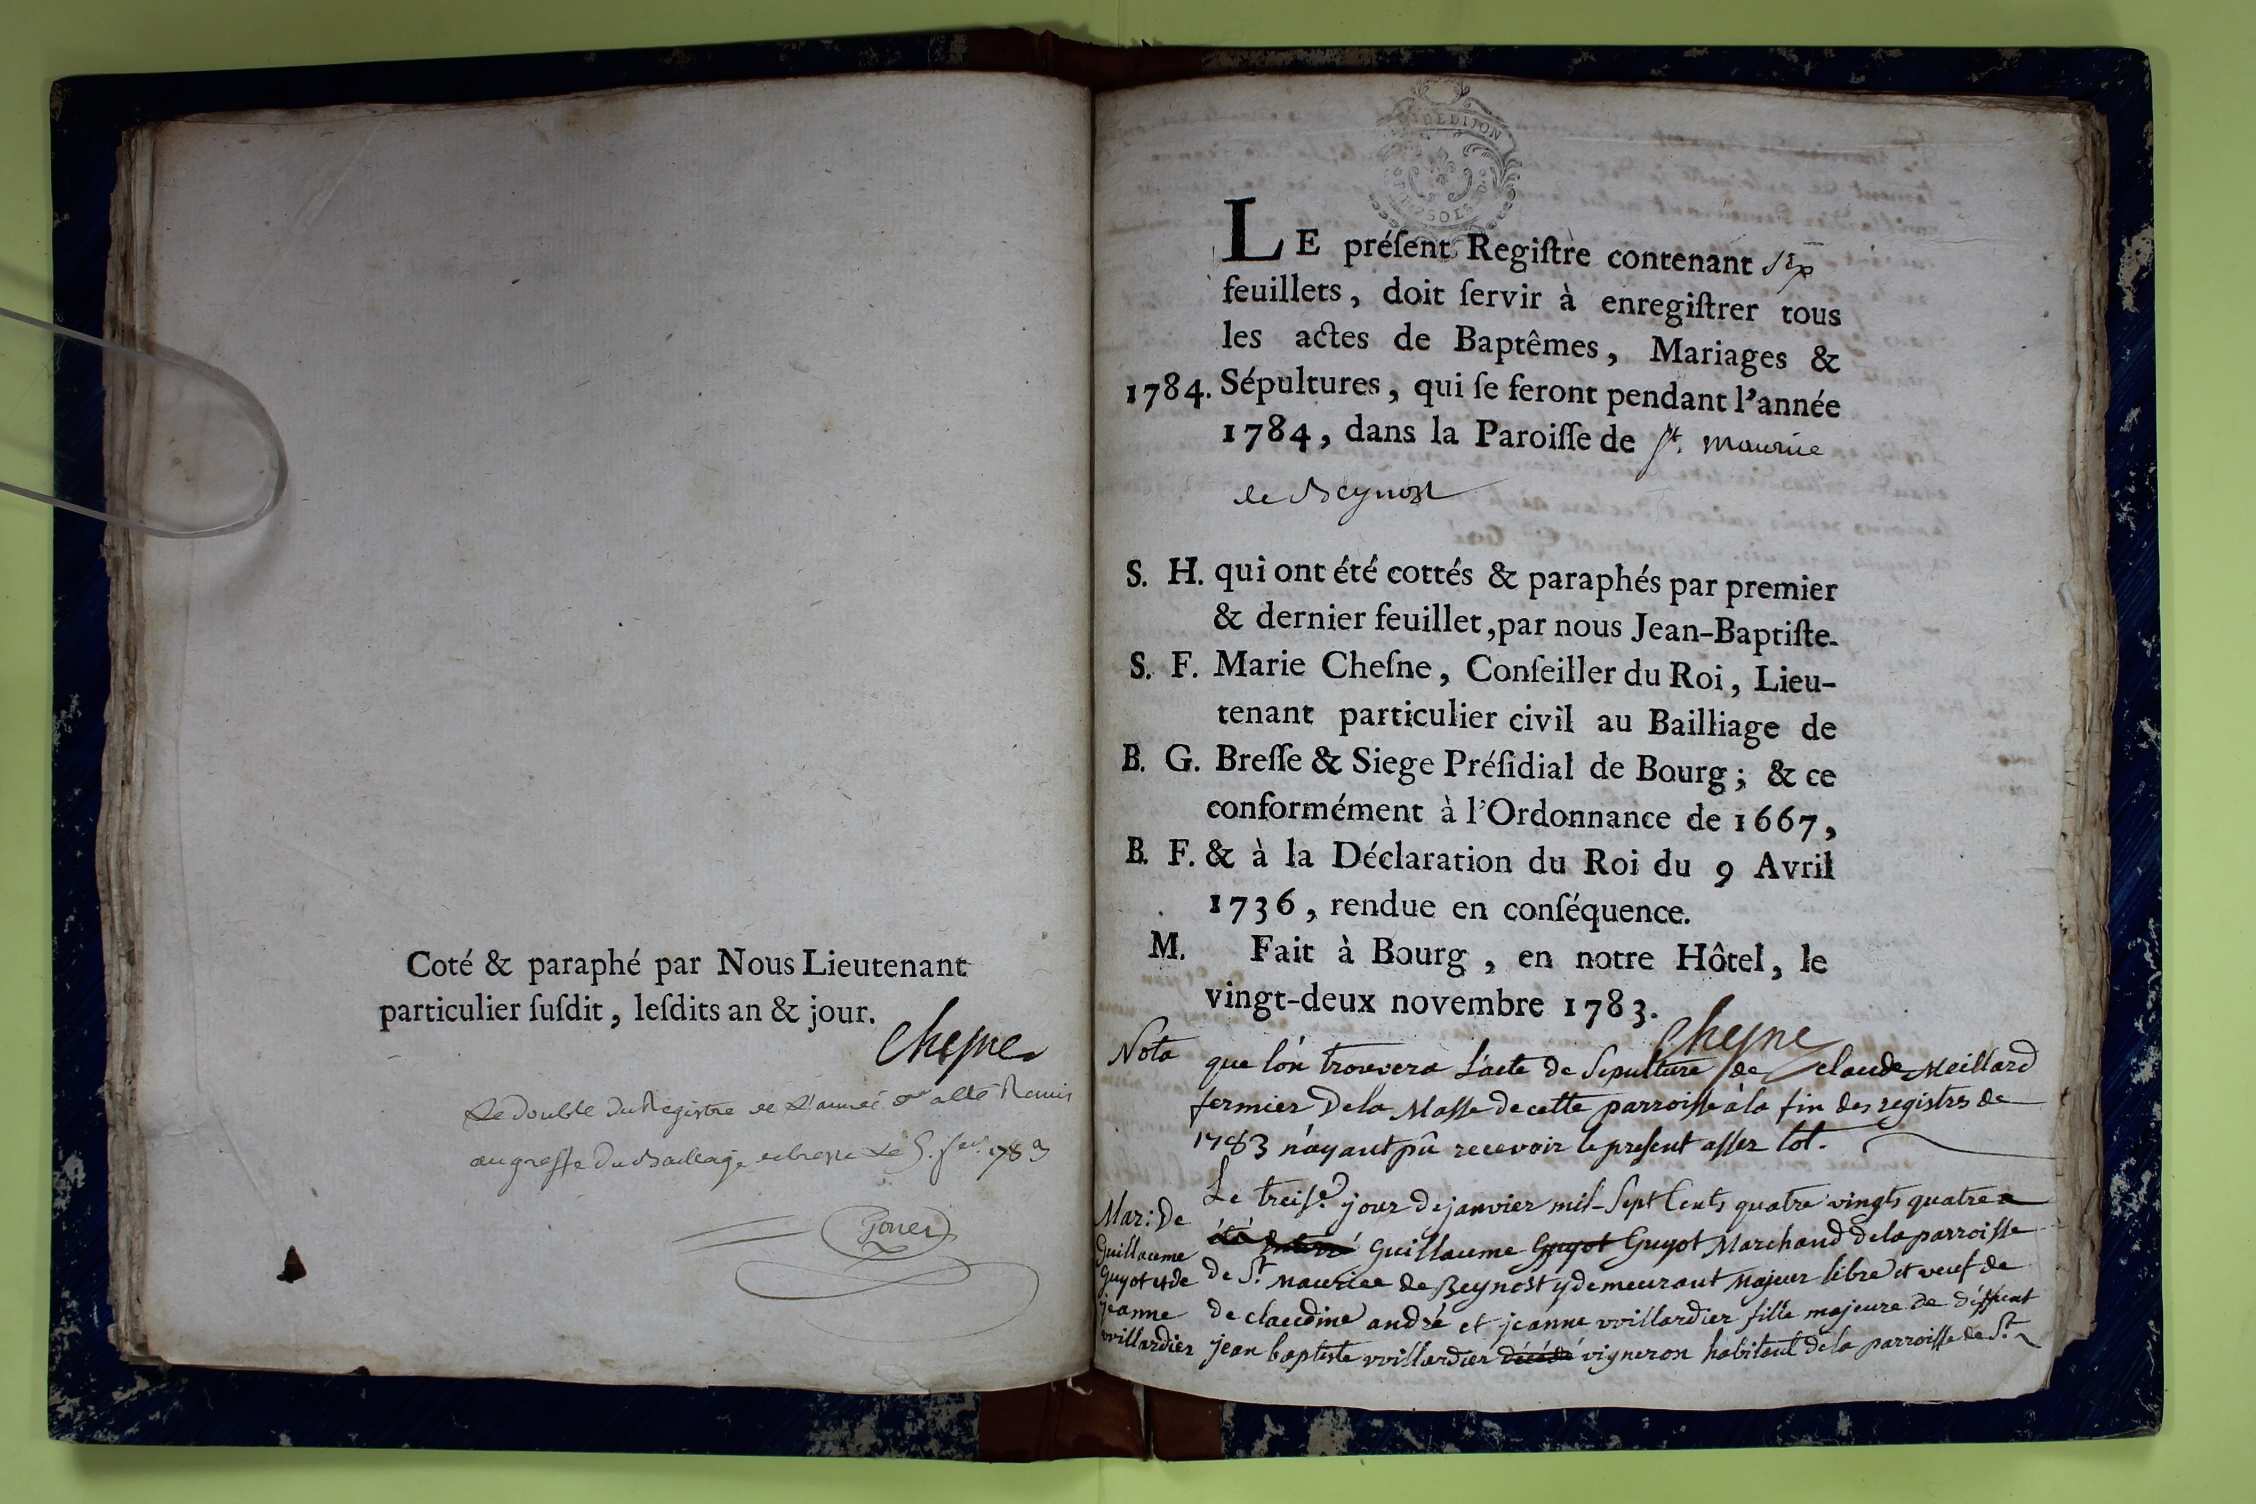 Coté & paraphé par Nous Lieutenant
particulier ſuſdit, leſdits an & jour.
Cheſne
Le double du Regiſtre de L'année a été Remis
au greffe du Bailliage de breſſe Le 5. 178
Goner
DEDIJON
SOLS
LE préſent Regiſtre contenant ſix
feuillets, doit ſervir à enregiſtrer tous
les actes de Baptêmes, Mariages &
1784. Sépultures, qui ſe feront pendant l'année
1784, dans la Paroiſſe de St. Maurice
de Beynost
S. H. qui ont été cottés & paraphés par premier
& dernier feuillet, par nous Jean-Baptiſte-
S. F. Marie Cheſne, Conſeiller du Roi, Lieu-
tenant particulier civil au Bailliage de
B. G. Breſſe & Siege Préſidial de Bourg; & ce
conformément à l'Ordonnance de 1667,
B. F. & à la Déclaration du Roi du 9 Avril
1736, rendue en conſéquence.
M. Fait à Bourg, en notre Hôtel, le
vingt-deux novembre 1783.
Cheſne
Nota que l'on trouvera L'acte de Sepulture de claude Meillard
fermier De la Maſſe de cette parroiſſe à la fin des registres de
1783 n'ayant pû recevoir le preſent aſſez tôt.
Mar: De
Guillaume
Guyot et de
jeanne
vvillardier
Le treiſe. jour de janvier mil-Sept Cents quatre vingts quatre a
été Guillaume Guyot Guyot Marchand de la parroiſſe
de St. Maurice de Beynost y demeurant Majeur libre et veuf de
de claudine andré et jeanne vvillardier fille majeure de deffunt
jean baptiste vvillardier décédé vigneron habitant de la parroiſſe de St.